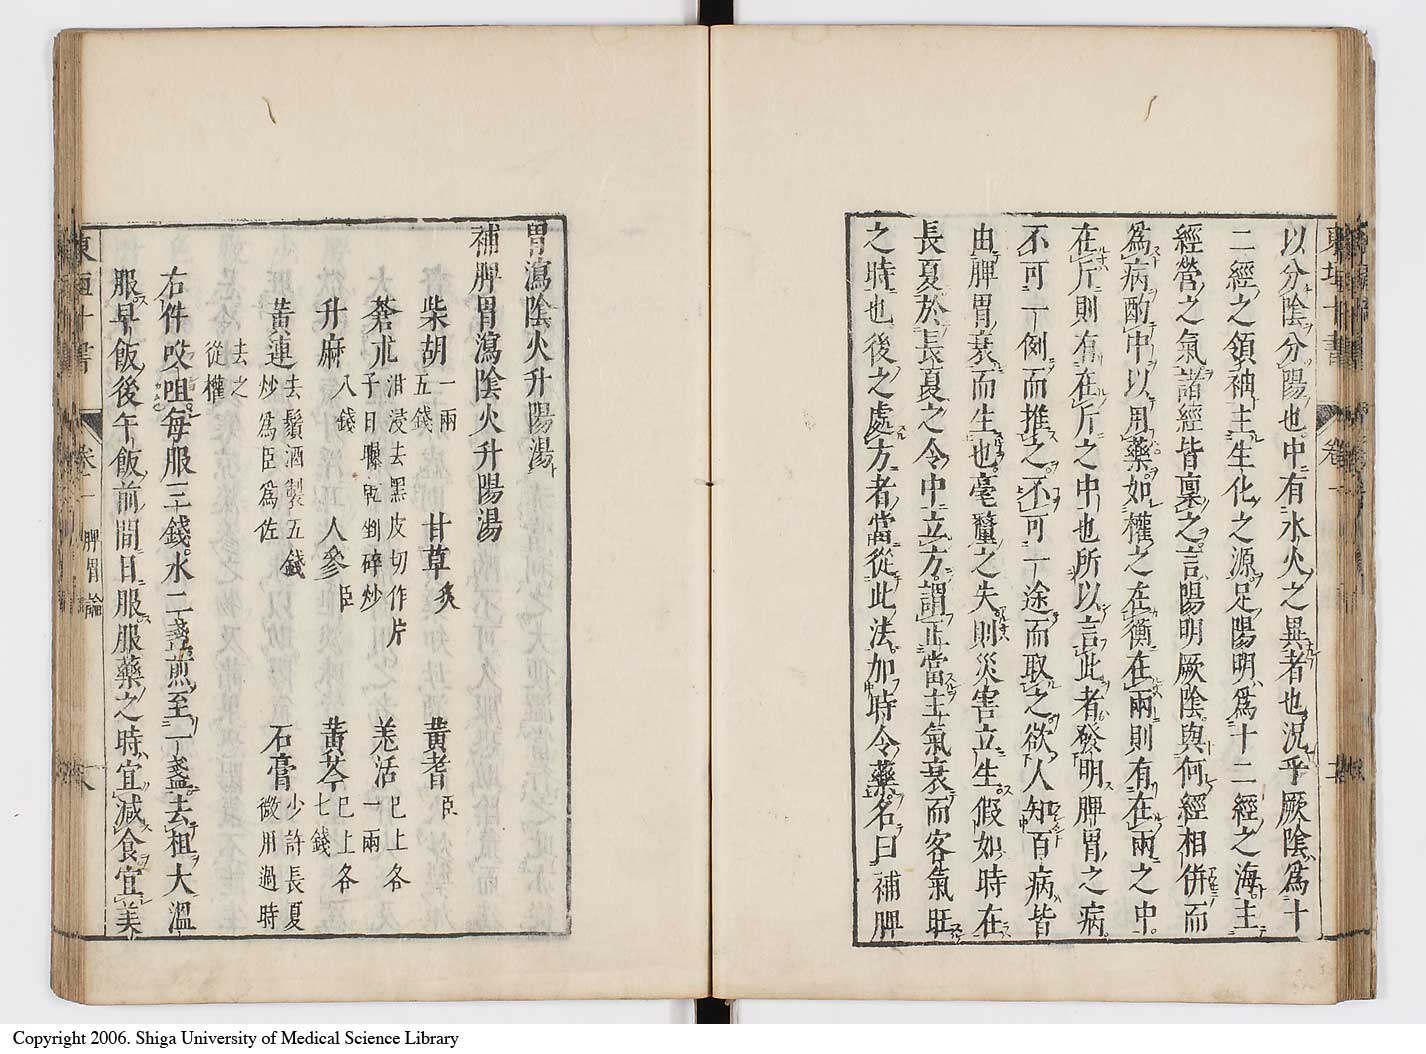 以分陰分陽也中有水火之異者也況乎厥陰為十
二經之領袖主生化之源足陽明為十二經之海主
經營之氣諸經皆稟之言陽明厥陰與何經相併而
為病酌中以用藥如權之在衡在兩則有在兩之中
在斤則有在斤之中也所以言此者發明脾胃之病
不可一例而推之不可一途而取之欲人知百病皆
由脾胃衰而生也毫釐之失則災害立生假如時在
長夏於長夏之令中立方謂正當主氣衰而客氣旺
之時也後之處方者當從此法加時令藥名曰補脾
胃瀉陰火升陽湯
補脾胃瀉陰火升陽湯
柴胡一兩五錢 甘草炙 黃耆臣
蒼朮泔浸去黑皮切作片子日曝乾剉碎炒 羌活已上各一兩
升麻八錢 人參臣 黃芩已上各七錢
黃連去鬚酒製五錢炒為臣為佐 石膏少許長夏微用過時
去之從權
右件㕮咀每服三錢水二盞煎至一盞去柤大溫
服早飯後午飯前間日服服藥之時宜減食宜美
卷一 脾胃論
Copyright 2006. Shiga University of Medical Science Library